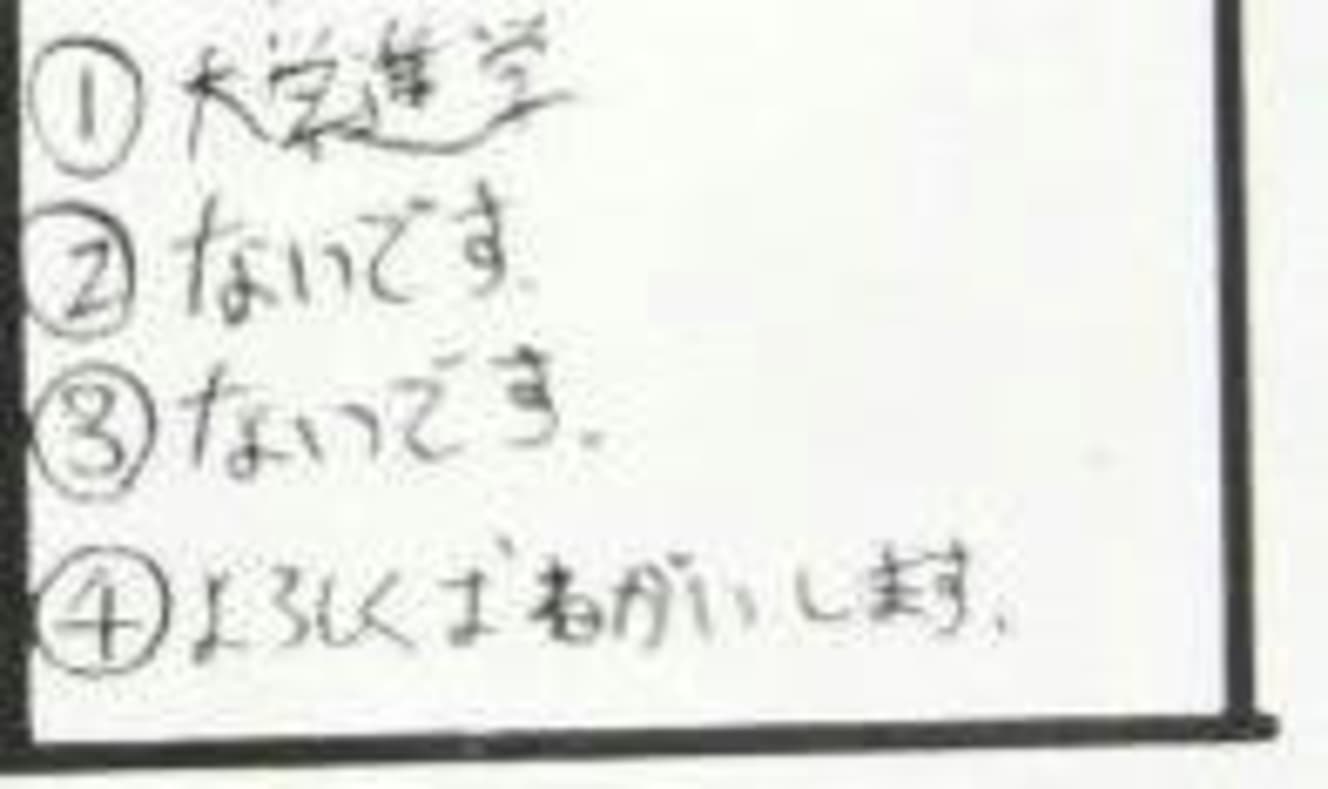 ① 大学進学
② ないです.
③ ないです.
④ よろしくおねがいします.